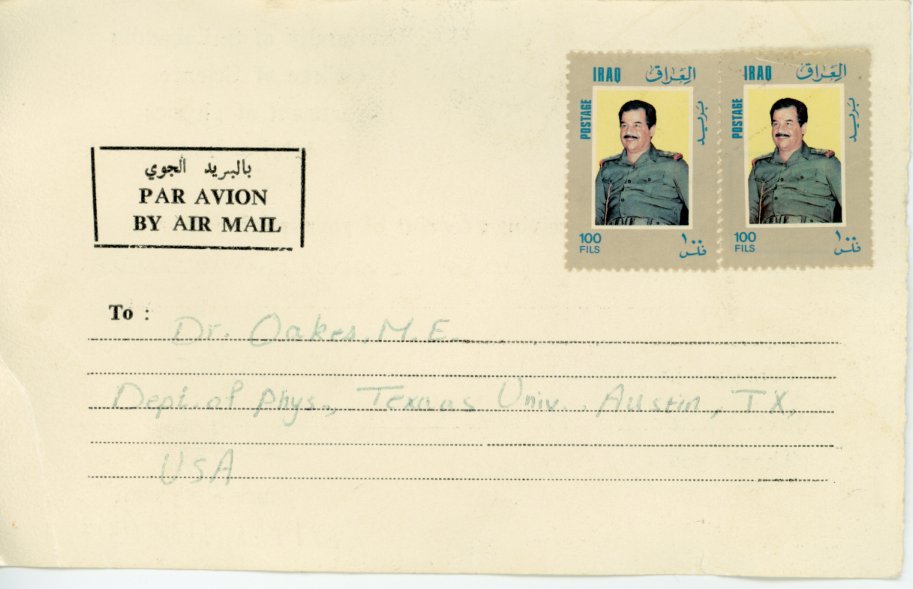 IRAQ العراق
POSTAGE
بريد
100
FILS
١٠٠
فلس
IRAQ العراق
POSTAGE
بريد
100
FILS
١٠٠
فلس
بالبريد الجوي
PAR AVION
BY AIR MAIL
To :
Dr. Oakes, M.E.
Dept. of Phys., Texaas Univ., Austin, TX,
USA